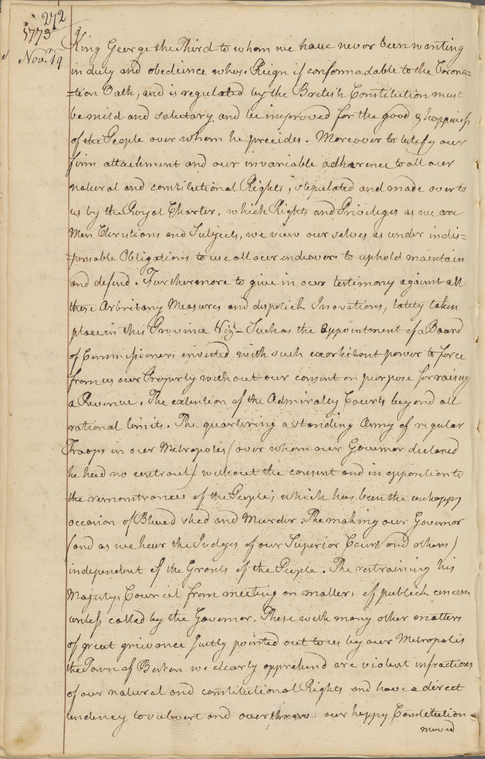 272
1773
Nov.r 19
King George the Third to whom we have never been wanting
in duty and obedience whose Reign if conformadable to the Corona=
=tion Oath, and is regulated by the British Constitution must
be mild and salutary, and be improved for the good & happiness
of the People over whom he precides. Moreover to testify our
firm attachment and our invariable adherence to all our
natural and constitutional Rights, stipulated and made over to
us by the Royal Charter, which Rights and Priviledges as we are
Men Christians and Subjects, we view our selves as under indis=
=pensable Obligations to use all our endeavors to uphold maintain
and defend. Furthermore to give in our testimony against all
these Arbritary Measures and dispotick Innovations, lately taken
place in this Province Viz. Such as the appointment of a Board
of Commissioners invested with such exorbitant power to force
from us our Property without our consent on purpose for raising
a Revenue. The extention of the Admiralty Courts beyond all
rational limits. The quartering a standing Army of regular
Troops in our Metropolis (over whom our Governor declared
he had no controul) without the consent and in opposition to
the remonstrances of the People; which has been the unhappy
occasion of Blood shed and Murder. The making our Governor
(and as we hear the Judges of our Superior Court and others)
independent of the Grants of the People. The restraining his
Majestys Council from meeting on matters of publick concern
unless called by the Governor. These with many other matters
of great grievance justly pointed out to us by our Metropolis
the Town of Boston we clearly apprehend are violent infractions
of our natural and constitutional Rights and have a direct
tendency to subvert and overthrow our happy Constitution